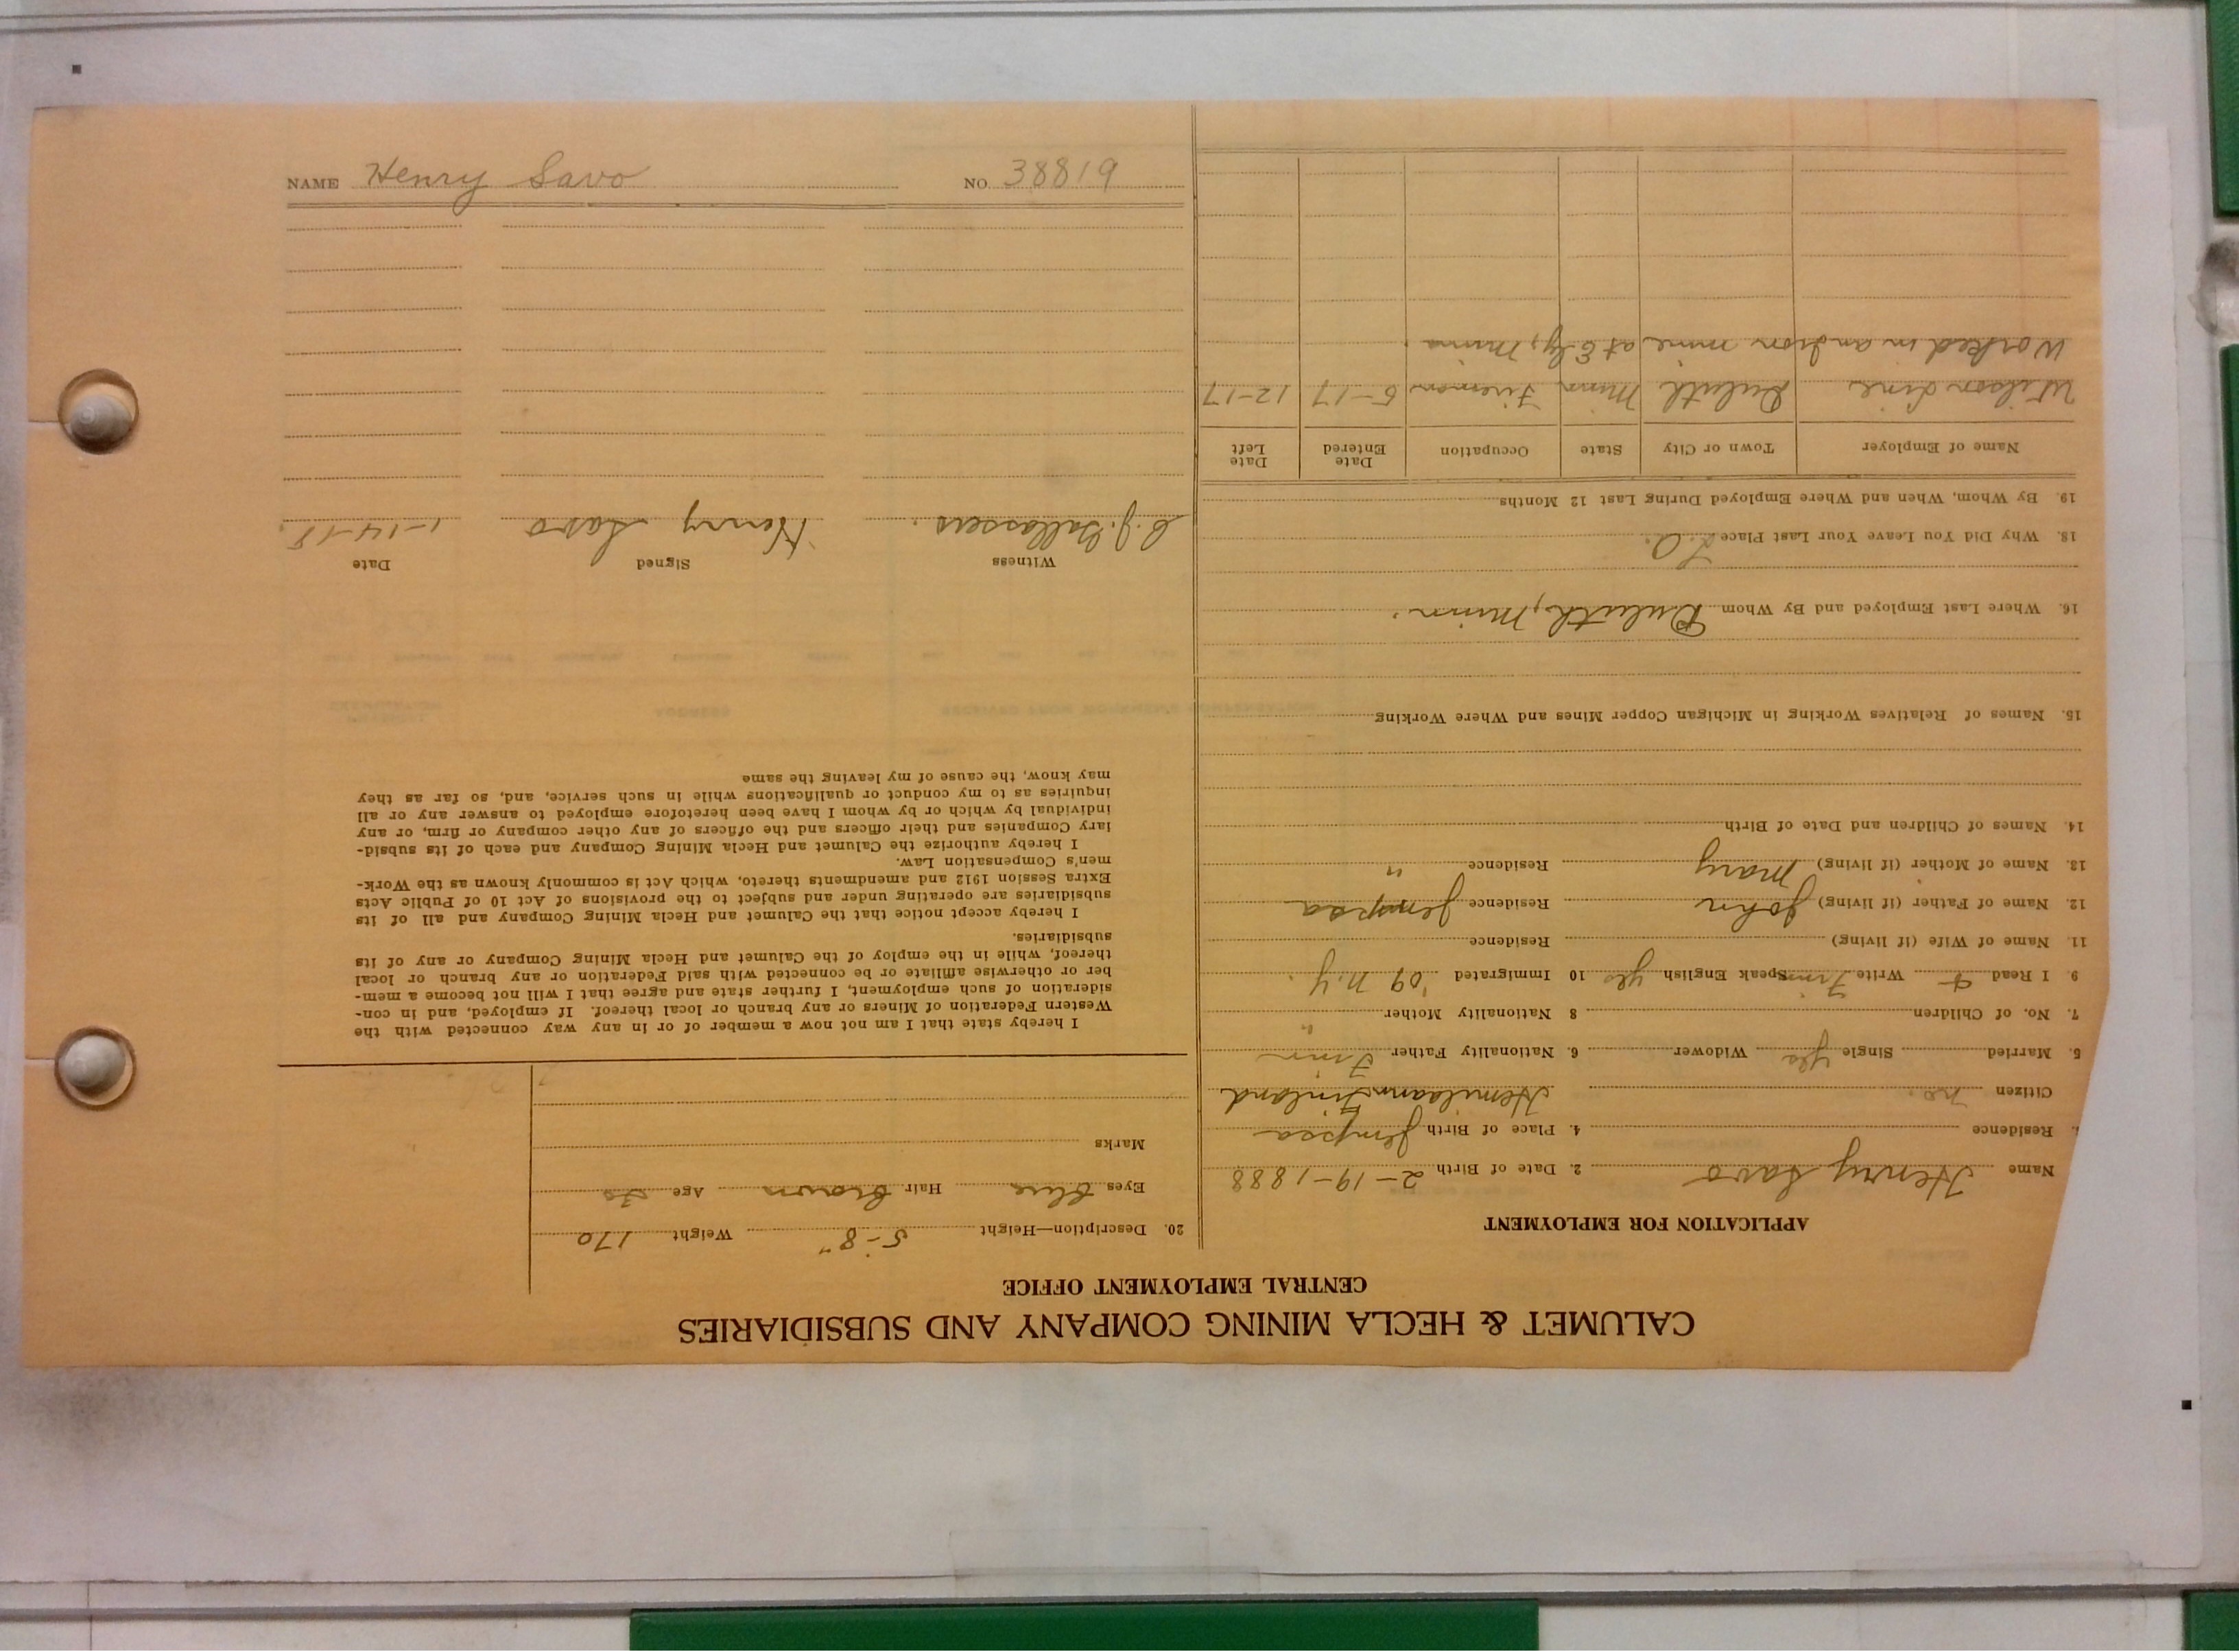 CALUMET & HECLA MINING COMPANY AND SUBSIDIARIES
CENTRAL EMPLOYMENT OFFICE
APPLICATION FOR EMPLOYMENT
Name Henry Savo 2. Date of Birth 2-19-1888
Residence 4. Place of Birth
Citizen no. Finland
5. Married Single yes Widower 6. Nationality Father Finn
7. No. of Children 8 Nationality Mother "
9. I Read & Write Finn Speak English yes 10 Immigrated '09 N.Y.
11. Name of Wife (if living) Residence
12. Name of Father (if living) John Residence
13. Name of Mother (if living) Mary Residence "
14. Names of Children and Date of Birth
15. Names of Relatives Working in Michigan Copper Mines and Where Working
16. Where Last Employed and By Whom Duluth, Minn.
18. Why Did You Leave Your Last Place
19. By Whom, When and Where Employed During Last 12 Months
Name of Employer Town or City State Occupation Date Entered Date Left
Wilson Line Duluth Minn Fireman 5-17 12-17
Worked in an Iron mine at Ely, Minn.
20. Description—Height 5-8" Weight 170
Eyes Blue Hair Brown Age 30
Marks
I hereby state that I am not now a member of or in any way connected with the
Western Federation of Miners or any branch or local thereof. If employed, and in con-
sideration of such employment, I further state and agree that I will not become a mem-
ber or otherwise affiliate or be connected with said Federation or any branch or local
thereof, while in the employ of the Calumet and Hecla Mining Company or any of its
subsidiaries.
I hereby accept notice that the Calumet and Hecla Mining Company and all of its
subsidiaries are operating under and subject to the provisions of Act 10 of Public Acts
Extra Session 1912 and amendments thereto, which Act is commonly known as the Work-
men's Compensation Law.
I hereby authorize the Calumet and Hecla Mining Company and each of its subsid-
iary Companies and their officers and the officers of any other company or firm, or any
individual by which or by whom I have been heretofore employed to answer any or all
inquiries as to my conduct or qualifications while in such service, and, so far as they
may know, the cause of my leaving the same
Witness Signed Date
Henry Savo 1-14-18.
NAME Henry Savo NO. 38819